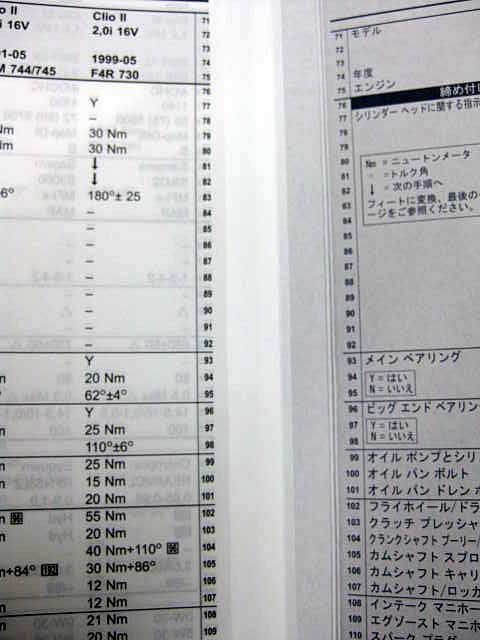 o II Clio II 71
i 16V 2,0i 16V 72
73
01-05 1999-05 74
M 744/745 F4R 730 75
76
Y 77
– 78
Nm 30 Nm 79
Nm 30 Nm 80
↓ 81
↓ 82
6° 180°± 25 83
– 84
– 85
– 86
– 87
– 88
– 89
– 90
– 91
– 92
Y 93
m 20 Nm 94
° 62°±4° 95
Y 96
m 25 Nm 97
110°±6° 98
m 25 Nm 99
m 15 Nm 100
m 20 Nm 101
m 96 55 Nm 102
m 20 Nm 103
40 Nm+110° 96 104
m+84° 102 30 Nm+86° 105
m 12 Nm 106
m 12 Nm 107
m 21 Nm 108
m 20 Nm 109
71 モデル
72
73
74 年度
75 エンジン
76 締め付け
77 シリンダー ヘッドに関する指示
78
79
80 Nm = ニュートンメータ
81 ° =トルク角
82 ↓ = 次の手順へ
83 フィートに変換、最後の
84 ージをご参照ください。
85
86
87
88
89
90
91
92
93 メイン ベアリング
94 Y = はい
95 N = いいえ
96 ビッグ エンド ベアリン
97 Y = はい
98 N = いいえ
99 オイル ポンプとシリ
100 オイル パン ボルト
101 オイル パン ドレン ボ
102 フライホイール/ドラ
103 クラッチ プレッシャ
104 クランクシャフト プーリー/
105 カムシャフト スプロ
106 カムシャフト キャリ
107 カムシャフト/ロッカ
108 インテーク マニホー
109 エグゾースト マニホ
110 スパーク プラグ